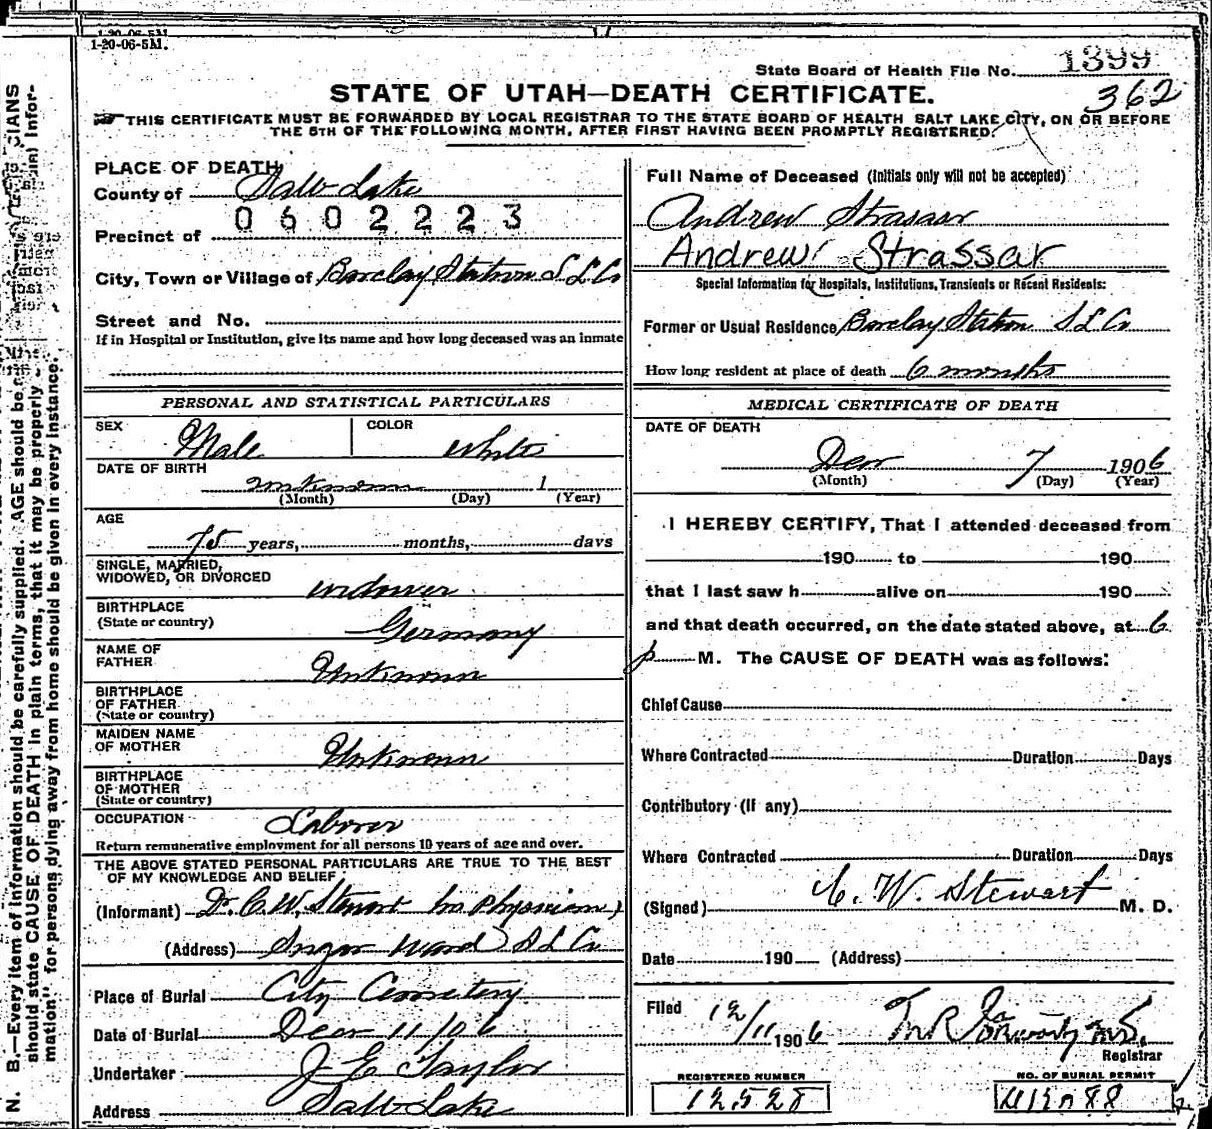 1-20-06-5M.
State Board of Health File No. 1399
362
STATE OF UTAH—DEATH CERTIFICATE.
THIS CERTIFICATE MUST BE FORWARDED BY LOCAL REGISTRAR TO THE STATE BOARD OF HEALTH SALT LAKE CITY, ON OR BEFORE
THE 5TH OF THE FOLLOWING MONTH, AFTER FIRST HAVING BEEN PROMPTLY REGISTERED.
PLACE OF DEATH
County of Salt Lake
0602223
Precinct of
City, Town or Village of Barclay Station S L Co
Street and No.
If in Hospital or Institution, give its name and how long deceased was an inmate
PERSONAL AND STATISTICAL PARTICULARS
SEX Male COLOR White
DATE OF BIRTH
unknown 1
(Month) (Day) (Year)
AGE
75 years, months, days
SINGLE, MARRIED,
WIDOWED, OR DIVORCED widower
BIRTHPLACE
(State or country) Germany
NAME OF
FATHER Unknown
BIRTHPLACE
OF FATHER
(State or country)
MAIDEN NAME
OF MOTHER Unknown
BIRTHPLACE
OF MOTHER
(State or country)
OCCUPATION Laborer
Return remunerative employment for all persons 10 years of age and over.
THE ABOVE STATED PERSONAL PARTICULARS ARE TRUE TO THE BEST
OF MY KNOWLEDGE AND BELIEF
(Informant) Dr. C. W. Stewart his Physician
(Address) Sugar Ward S L Co
Place of Burial City Cemetery
Date of Burial Dec 11/06
Undertaker J E Taylor
Address Salt Lake
Full Name of Deceased (Initials only will not be accepted)
Andrew Strassar
Andrew Strassar
Special Information for Hospitals, Institutions, Transients or Recent Residents:
Former or Usual Residence Barclay Station S L Co
How long resident at place of death 6 months
MEDICAL CERTIFICATE OF DEATH
DATE OF DEATH
Dec 7 1906
(Month) (Day) (Year)
I HEREBY CERTIFY, That I attended deceased from
190 to 190
that I last saw h alive on 190
and that death occurred, on the date stated above, at 6
p M. The CAUSE OF DEATH was as follows:
Chief Cause
Where Contracted Duration Days
Contributory (If any)
Where Contracted Duration Days
(Signed) C. W. Stewart M. D.
Date 190 (Address)
Filed 12/11 1906
Registrar
REGISTERED NUMBER
12528
NO. OF BURIAL PERMIT
N. B.—Every item of information should be carefully supplied. AGE should be
should state CAUSE OF DEATH in plain terms, that it may be properly
mation" for persons dying away from home should be given in every instance.